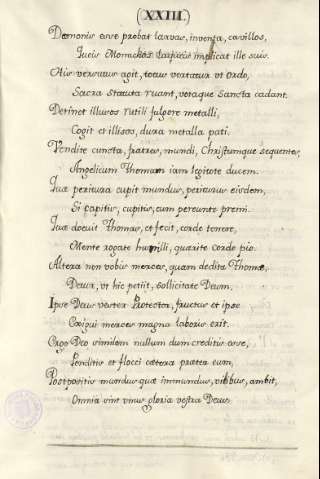 (XXIII.)
Dæmonis esse probat larvas, inventa, cavillos,
Jucis Monachos implicat ille suis.
His versutus agit, totus vertatur ut Ordo,
Sacra Statuta ruant, votaque Sancta cadant.
Detinet illusos rutili fulgore metalli,
Cogit et illisos, dura metalla pati.
Vendite cuncta, fratres, mundi, Christumque sequentes,
Angelicum Thomam iam legitote ducem.
Quæ peritura cupit mundus, periturus eisdem,
Si capitis, cupitis, cum pereunte premi.
Quæ docuit Thomas, et fecit, corde tenere,
Mente rogate humili, quærite corde pio.
Altera non vobis merces, quam dedita Thomæ,
Deus, ut hic petiit, sollicitate Deum,
Ipse Deus vester Protector, fructus et ipse
Exigui merces magna laboris erit.
Ergo Deo similem nullum dum creditis esse,
Penditis et flocci cætera præter eum,
Postpositis mundus quæ immundus, vilibus, ambit,
Omnia sint unus gloria vestra Deus.